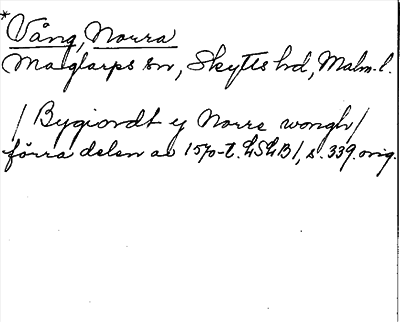 *Vång, Norra
Maglarps sn, Skytts hd, Malm. l.
/Bygiordt y Norre wongh/
förra delen av 1570-t. LSLB1, s. 339. orig.